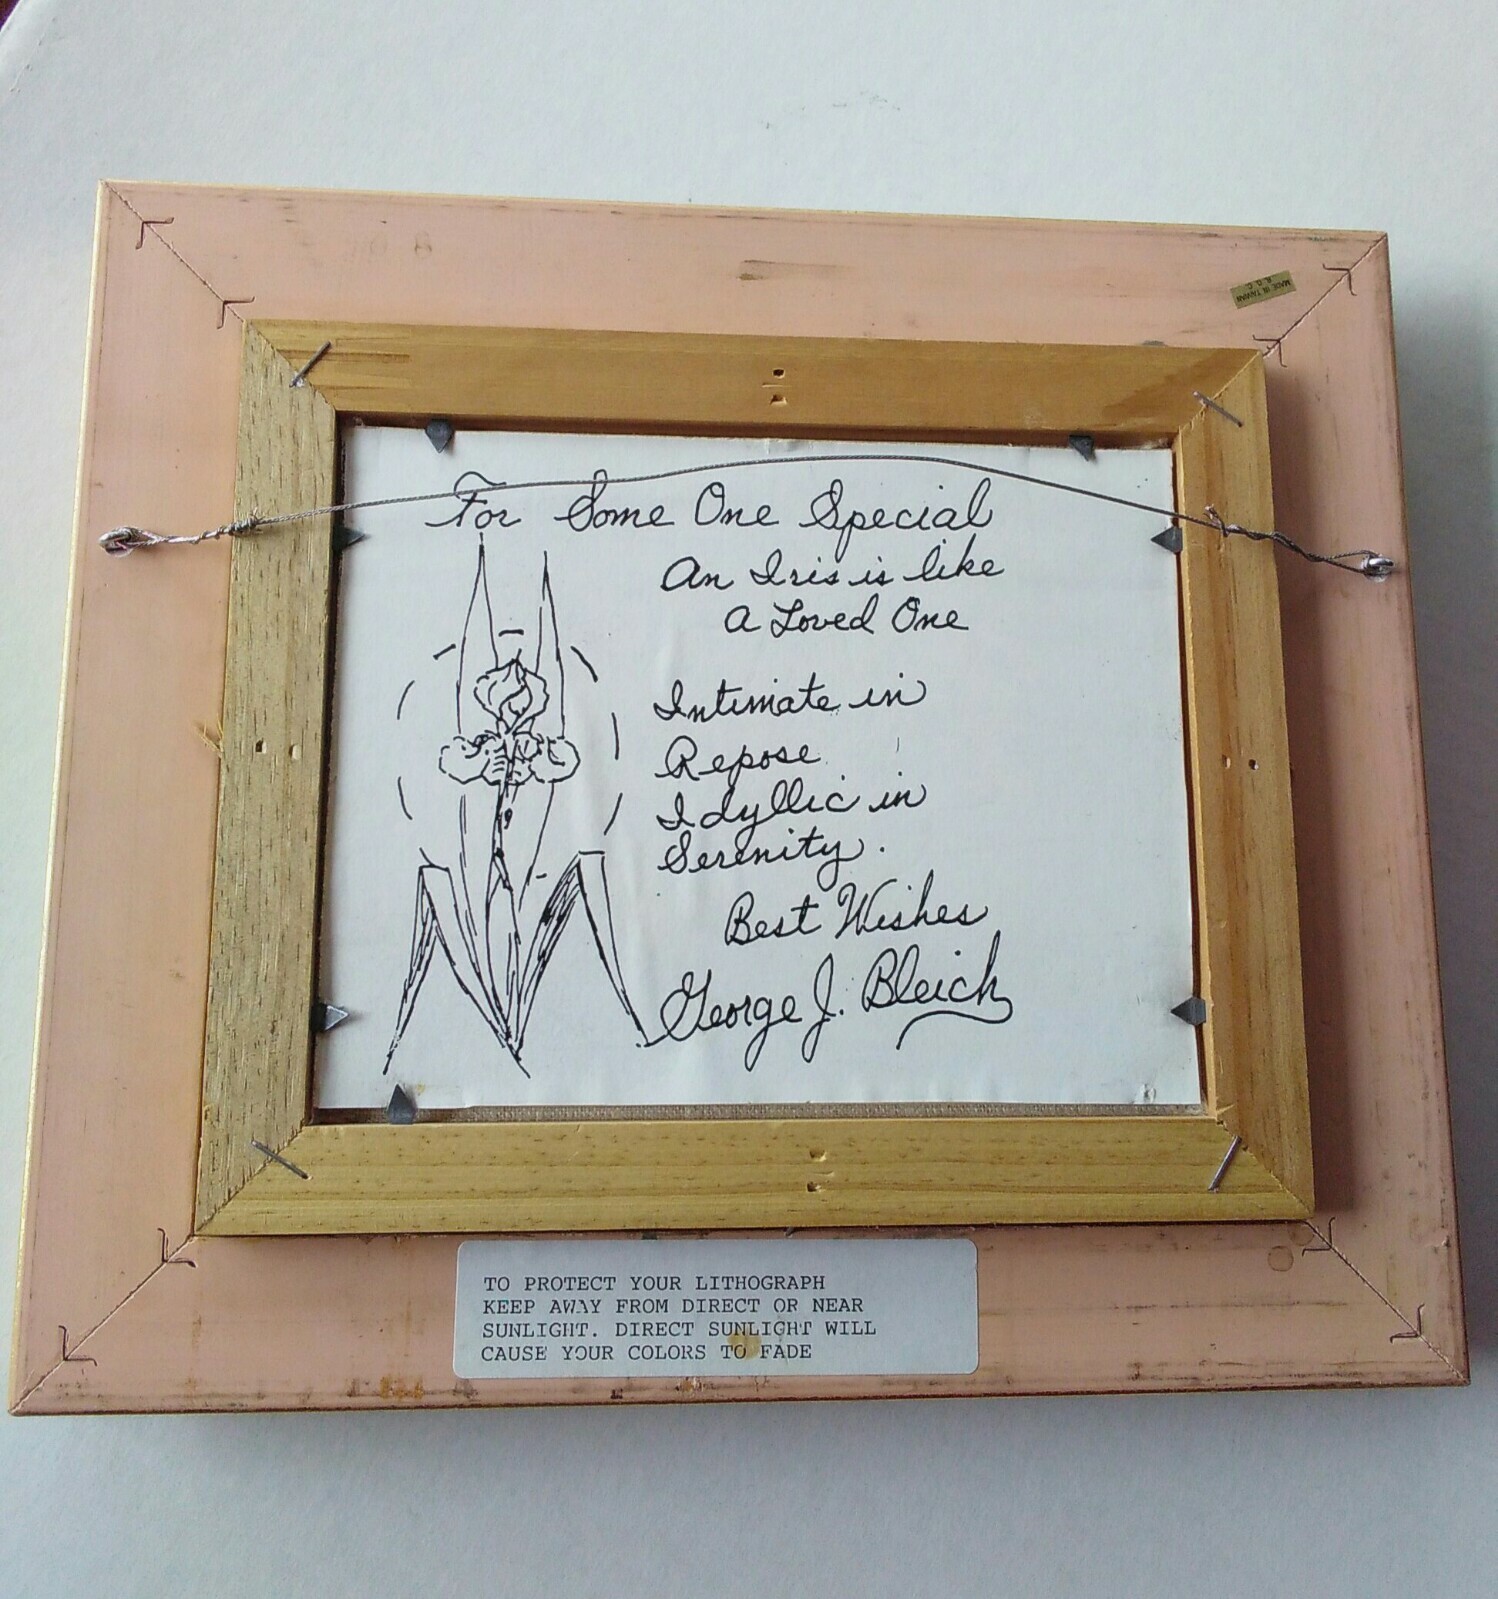 MADE IN TAIWAN
R.O.C.
For Some One Special
An Iris is like
A Loved One
Intimate in
Repose
Idyllic in
Serenity.
Best Wishes
George J. Bleich
TO PROTECT YOUR LITHOGRAPH
KEEP AWAY FROM DIRECT OR NEAR
SUNLIGHT. DIRECT SUNLIGHT WILL
CAUSE YOUR COLORS TO FADE